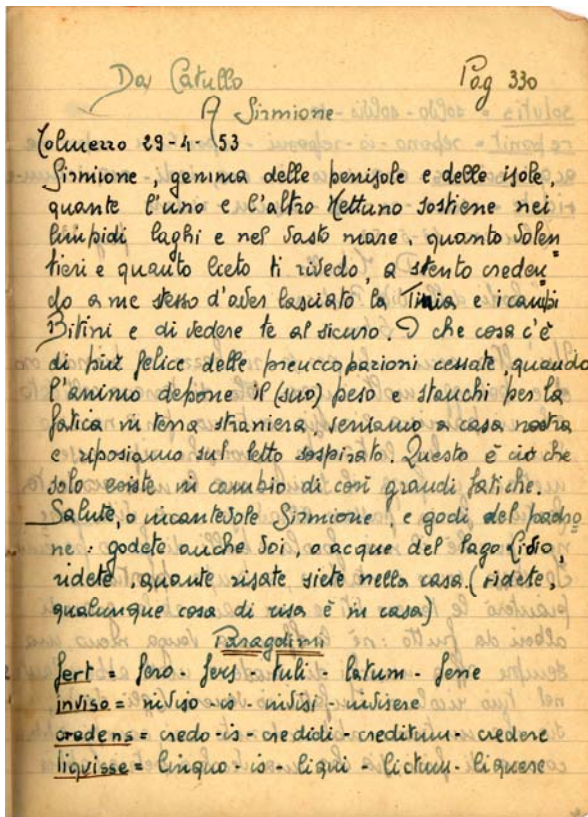 Da Catullo Pag 330
A Sirmione
Tolmezzo 29-4-53
Sirmione, gemma delle penisole e delle isole,
quante l'uno e l'altro Nettuno sostiene nei
limpidi laghi e nel vasto mare, quanto volen=
tieri e quanto lieto ti rivedo, a stento creden=
do a me stesso d'aver lasciato la Tinia e i campi
Bitini e di vedere te al sicuro. O che cosa c'è
di più felice delle preuccopazioni cessate, quando
l'animo depone il (suo) peso e stanchi per la
fatica in terra straniera, veniamo a casa nostra
e riposiamo sul letto sospirato. Questo è ciò che
solo esiste in cambio di così grandi fatiche.
Salute, o incantevole Sirmione e godi del padro
ne: godete anche voi, o acque del lago Lidio,
ridete, quante risate siete nella casa. (ridete,
qualunque cosa di risa è in casa)
Paragdimi
fert = fero - fers - tuli - latum - ferre
inviso = inviso - is - invisi - invisere
credens = credo - is - credidi - creditum - credere
liquisse = linquo - is - liqui - lictum - liquere